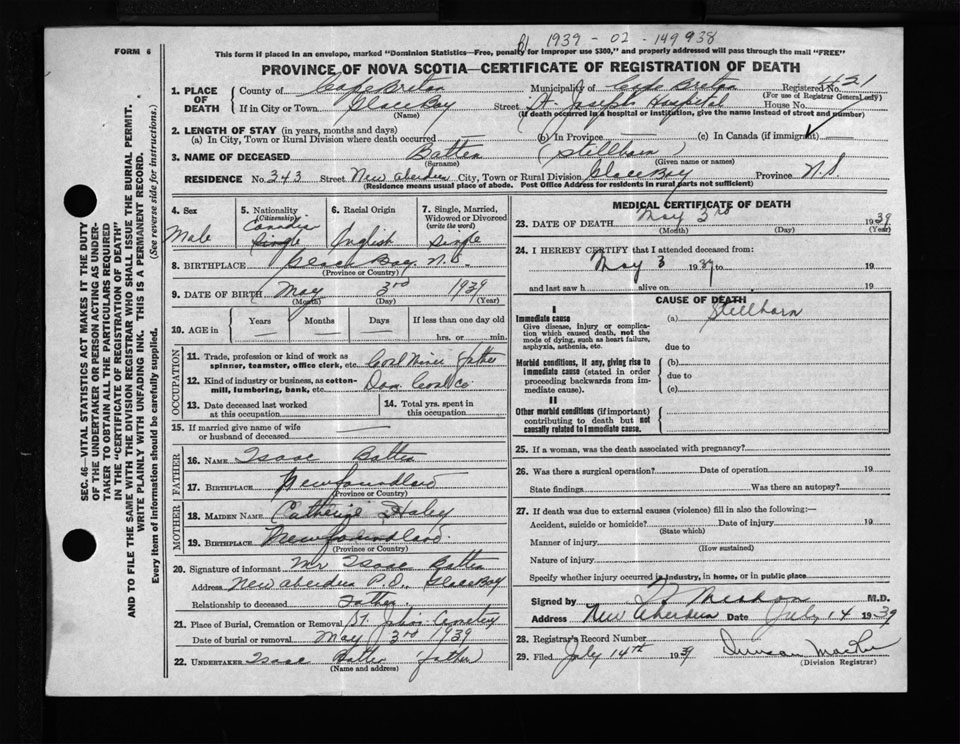 1939 - 02 - 149938
FORM 6
This form if placed in an envelope, marked "Dominion Statistics—Free, penalty for improper use $300," and properly addressed will pass through the mail "FREE"
PROVINCE OF NOVA SCOTIA—CERTIFICATE OF REGISTRATION OF DEATH
1. PLACE OF DEATH
County of Cape Breton Municipality of Cape Breton Registered No. 421
(For use of Registrar General only)
If in City or Town Glace Bay Street St. Joseph Hospital House No.
(Name) (If death occurred in a hospital or institution, give the name instead of street and number)
2. LENGTH OF STAY (in years, months and days)
(a) In City, Town or Rural Division where death occurred (b) In Province (c) In Canada (if immigrant)
3. NAME OF DECEASED Batten (Stillborn)
(Surname) (Given name or names)
RESIDENCE No. 343 Street New Aberdeen City, Town or Rural Division Glace Bay Province N.S.
(Residence means usual place of abode. Post Office Address for residents in rural parts not sufficient)
4. Sex
Male
5. Nationality (Citizenship)
Canadian
Single
6. Racial Origin
English
7. Single, Married, Widowed or Divorced (write the word)
Single
8. BIRTHPLACE Glace Bay, N.S.
(Province or Country)
9. DATE OF BIRTH May 3rd 1939
(Month) (Day) (Year)
10. AGE in
Years Months Days If less than one day old
hrs. or min.
OCCUPATION
11. Trade, profession or kind of work as spinner, teamster, office clerk, etc. Coal Miner father
12. Kind of industry or business, as cotton-mill, lumbering, bank, etc. Dom. Coal Co
13. Date deceased last worked at this occupation
14. Total yrs. spent in this occupation
15. If married give name of wife or husband of deceased
FATHER
16. NAME Isaac Batten
17. BIRTHPLACE Newfoundland
(Province or Country)
MOTHER
18. MAIDEN NAME Catherine Haley
19. BIRTHPLACE Newfoundland
(Province or Country)
20. Signature of informant Mr Isaac Batten
Address New Aberdeen P.O., Glace Bay
Relationship to deceased Father
21. Place of Burial, Cremation or Removal St. John's Cemetery
Date of burial or removal May 3rd 1939
22. UNDERTAKER Isaac Batten father
(Name and address)
MEDICAL CERTIFICATE OF DEATH
23. DATE OF DEATH May 3rd 1939
(Month) (Day) (Year)
24. I HEREBY CERTIFY that I attended deceased from:
May 3 1939 to 19
and last saw h alive on 19
CAUSE OF DEATH
I
Immediate cause (a) Stillborn
Give disease, injury or complication which caused death, not the mode of dying, such as heart failure, asphyxia, asthenia, etc.
due to
Morbid conditions, if any, giving rise to immediate cause (stated in order proceeding backwards from immediate cause).
(b)
due to
(c)
II
Other morbid conditions (if important) contributing to death but not causally related to immediate cause.
25. If a woman, was the death associated with pregnancy?
26. Was there a surgical operation? Date of operation 19
State findings Was there an autopsy?
27. If death was due to external causes (violence) fill in also the following:—
Accident, suicide or homicide? Date of injury 19
(State which)
Manner of injury
(How sustained)
Nature of injury
Specify whether injury occurred in industry, in home, or in public place
Signed by M.D.
Address New Aberdeen Date July 14 1939
28. Registrar's Record Number
29. Filed July 14th 1939 Duncan
(Division Registrar)
SEC. 46—VITAL STATISTICS ACT MAKES IT THE DUTY
OF THE UNDERTAKER OR PERSON ACTING AS UNDER-
TAKER TO OBTAIN ALL THE PARTICULARS REQUIRED
IN THE "CERTIFICATE OF REGISTRATION OF DEATH"
AND TO FILE THE SAME WITH THE DIVISION REGISTRAR WHO SHALL ISSUE THE BURIAL PERMIT.
WRITE PLAINLY WITH UNFADING INK. THIS IS A PERMANENT RECORD.
Every item of information should be carefully supplied. (See reverse side for instructions.)